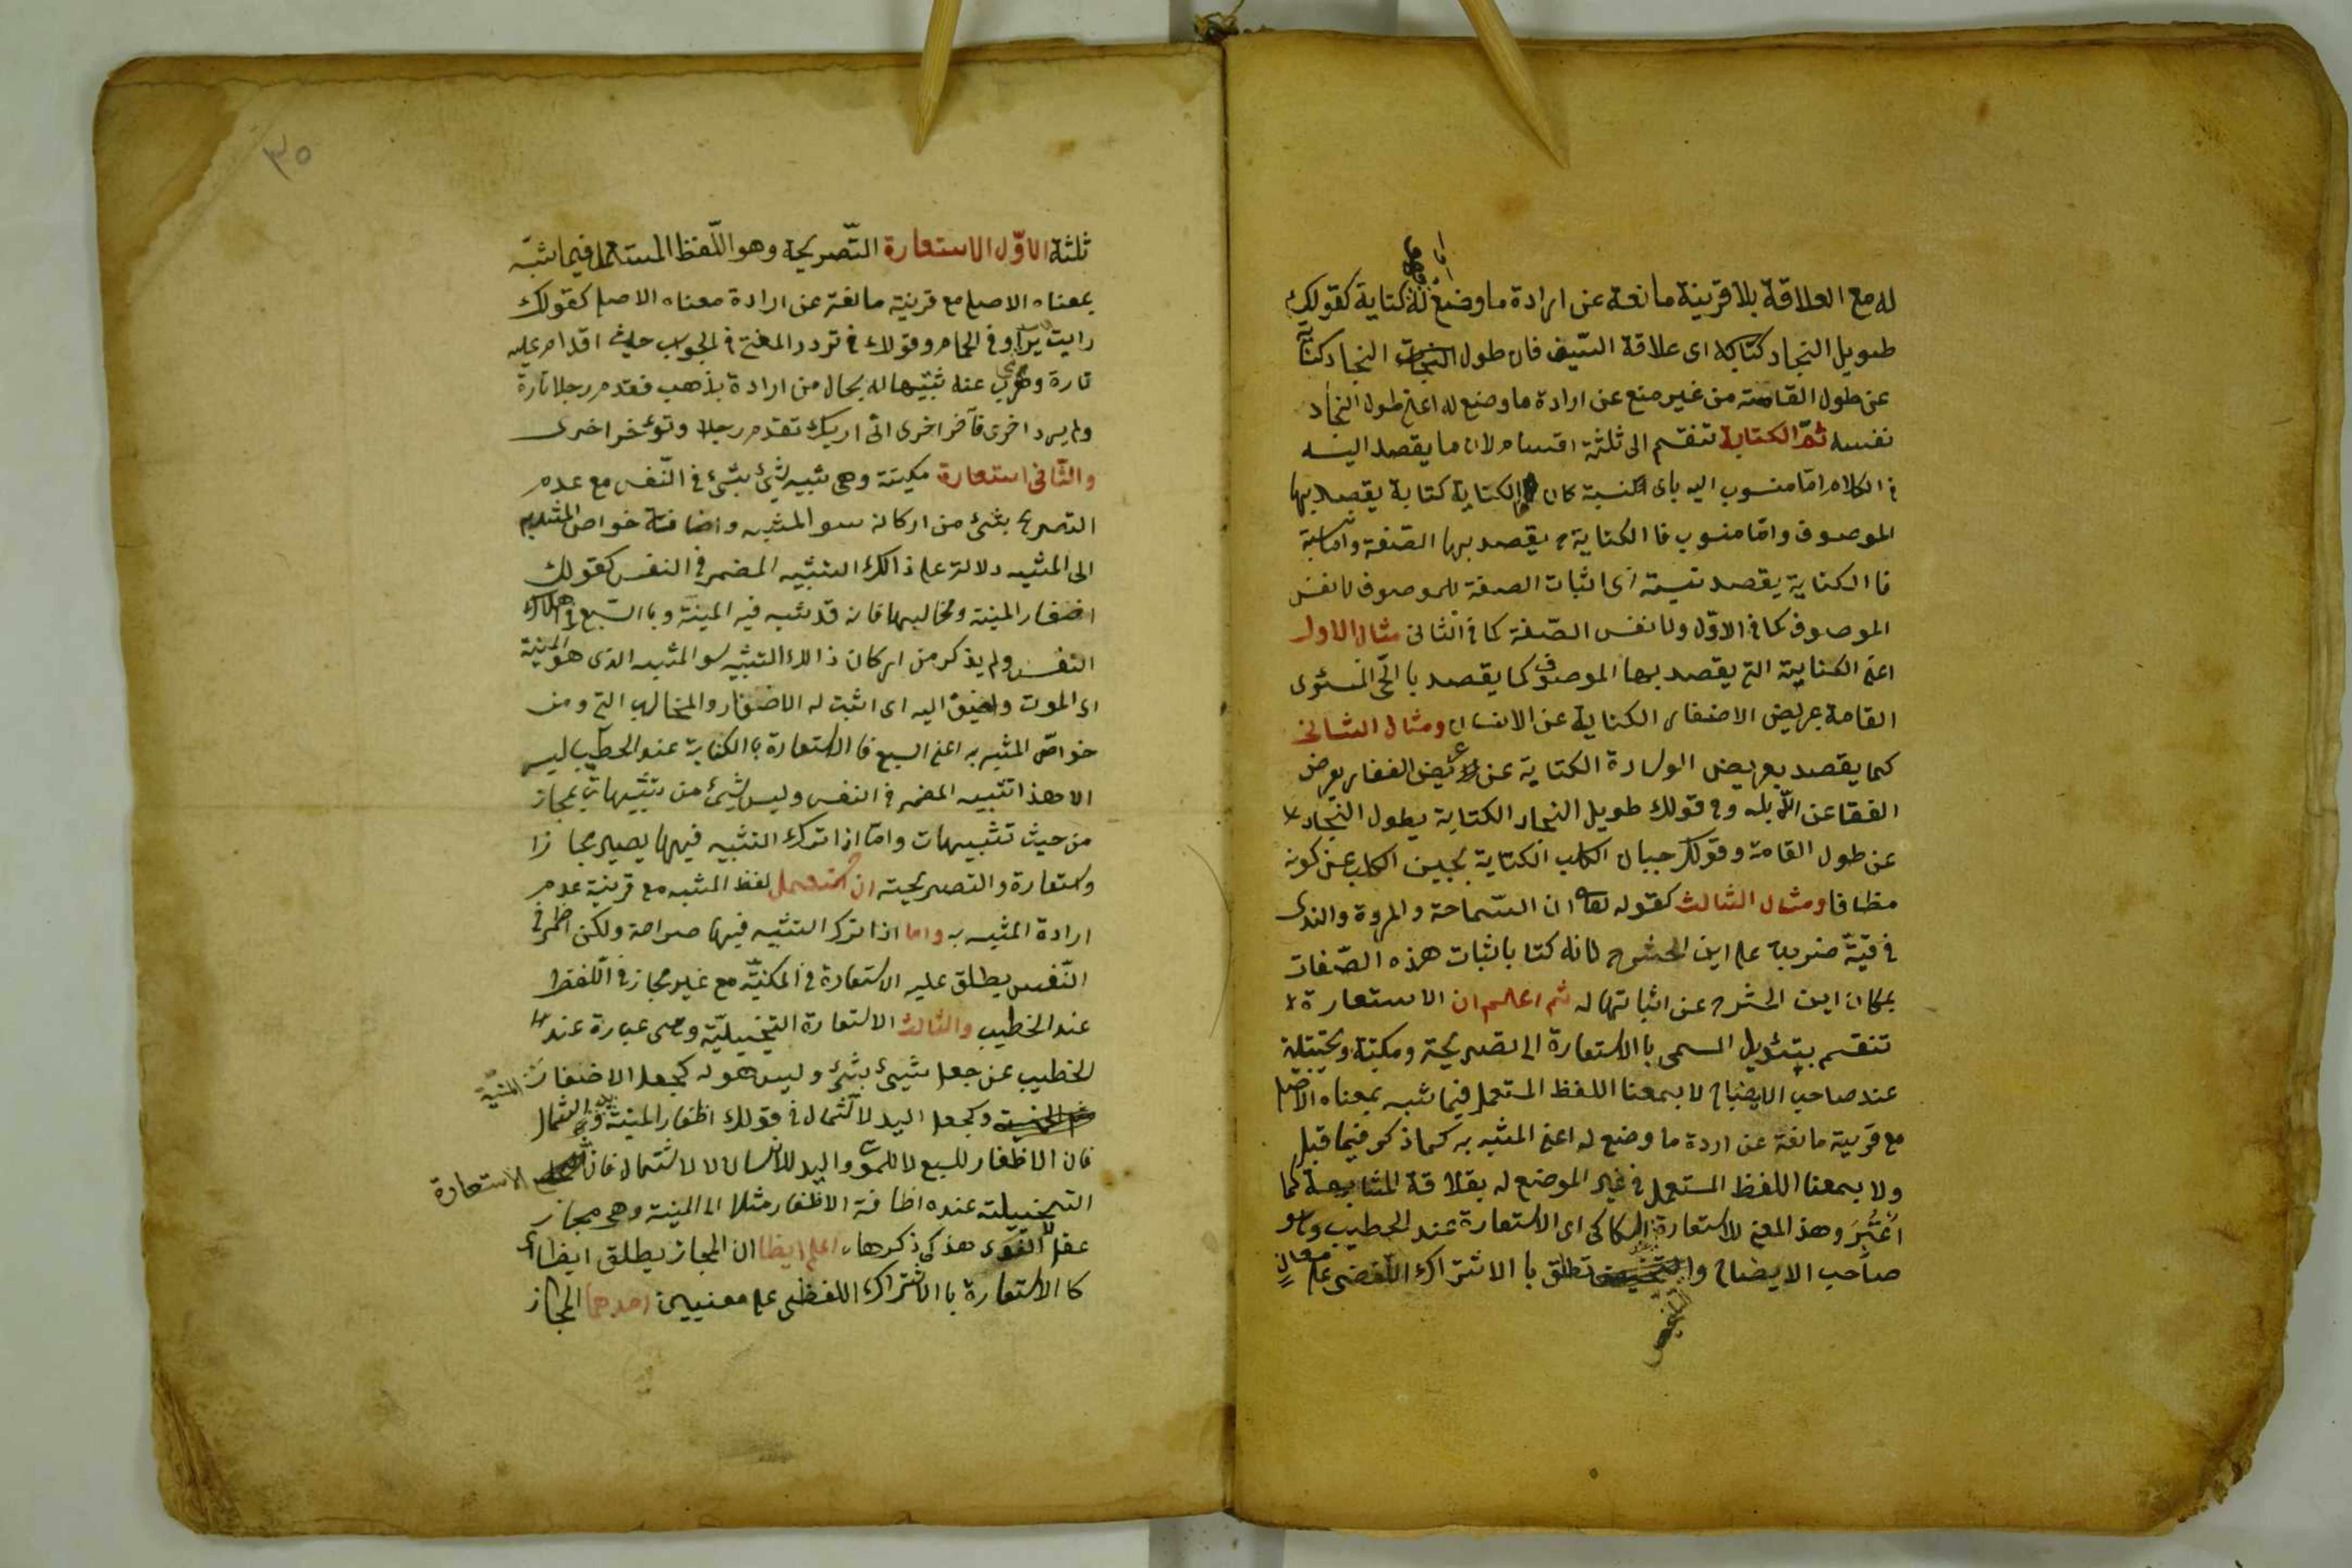 له مع العلاقة بلا قرينة مانعة عن ارادة ما وضع له كتاية كقولك
طويل النجاد كتاية اى علاقة السّيف فان طول النجاد كتاية
عن طول القامته من غير منع عن ارادة ما وضع له اعنى طول النجاد
نفسه ثمّ الكتاية تنقسم الى ثلثة اقسام لان ما يقصد اليه
فى الكلام امّا منسوب اليه باى نسبة كان فا الكتاية كتاية يقصد بها
الموصوف وامّا منسوب فا الكتاية ح يقصد بها الصّفة وامّا نسبة
فا الكناية يقصد نسبة اى اثبات الصفة للموصوف لا نفس
الموصوف كما فى الاوّل ولا نفس الصّفة كما فى الثانى مثال الاول
اعنى الكناية التى يقصد بها الموصوف كما يقصد با الحّى المستوى
القامة عريض الاضفار الكناية عن الانسان ومثال الثانى
كما يقصد بعريض الوسادة الكتاية عن عريض القفا وبعرض
القفا عن الابله وفى قولك طويل النجاد الكتاية بطول النجاد
عن طول القامة وقولك جبان الكلب الكتاية بجبن الكلب عن كونه
مظافا ومثال الثالث كقوله ان السّماحة والمروة والندى
فى قبّة ضربت على ابن الحشرج فانه كتا باثبات هذه الصّفات
بمكان ابن الحشرج عن اثباتها له ثم اعلم ان الاستعارة
تنقسم بتئويل المسمى با الاستعارة الى تصريحة ومكنية وتخييلية
عند صاحب الايضاح لا بمعنا اللفظ المستعمل فيما شبه بمعناه الاصلى
مع قرينة مانعة عن اردة ما وضع له اعنى المشبه به كما ذكر فيما قبل
ولا بمعنا اللفظ المستعمل فى غير الموضع له بعلاقة المشابهة كما
اعتُبِرَ وهذ المعنى للاستعارة السكاكى اى الاستعارة عند الخطيب وهو
صاحب الايضاح والتلخيص تطلق با الاشتراك اللفضى على معان
٣٥
ثلثة الاوّل الاستعارة التّصريحية وهو اللّفظ المستعمل فيما شبّه
بمعناه الاصلى مع قرينة مانعة عن ارادة معناه الاصلى كقولك
رايت فى الحمام وقولك فى تردد المفتى فى الجواب حيث اقدام عليه
تارة عنه تشبّيها له بحال من ارادة يذهب فقدم رجلا تارة
ولم يرد اخرى فآخر اخرى انّى اريك تقدم رجلا وتوئخر اخرى
والثّانى استعارة مكينة وهى تشبيه شئ بشئ فى النّفس مع عدم
التصريح بشئ من اركانه سو المشبه واضافة خواص المشبه به
الى المشبه دلالة على ذالك التشبيه المضمر فى النفس كقولك
اضفار المنية ومخالبها فانه قد شبه فيه المنيّة وبا السّبع فى اهلاك
النفس ولم يذكر من اركان ذالك التشبيه سو المشبه الذى هو المنية
اى الموت واضيف اليه اى اثبت له الاضفار والمخالب التى ومن
خواصّ المشبه به اعنى السبع فا الاستعارة با الكناية عند الخطيب ليس
الا هذا تشبيه المضمر فى النفس وليس شئ من تشبيهات بمجاز
من حيث تشبيهات وامّا اذا ترك التشبيه فيها يصير مجازا
واستعارة والتصريحية ان استعمل لفظ المشبه مع قرينة عدم
ارادة المشبه به واما اذا ترك التشبيه فيها صراحة ولكن اظمر فى
النّفس يطلق عليه الاستعارة فى المكنيّة مع غير مجاز فى الّلفظ
عند الخطيب والثالث الاستعارة التخييليّة وهى عبارة عند
الخطيب عن جعل شيئ بشئ وليس هو له كجعل الاضفار المنيّة
وكجعل اليد لا لشمال فى قولك اظفار المنية ويد الشمال
فان الاظفار للسبع لا للموت واليد للانسان لا لالشمال فانّ الاستعارة
التخييلية عنده اظافة الاظفار مثلا الى المنية وهى مجاز
عقلى لا لغوى هذكى ذكرها، اعلم ايظا ان المجاز يطلق ايظا اى
كا الاستعارة با الاشتراك اللفظى على معنيين احدهما المجاز